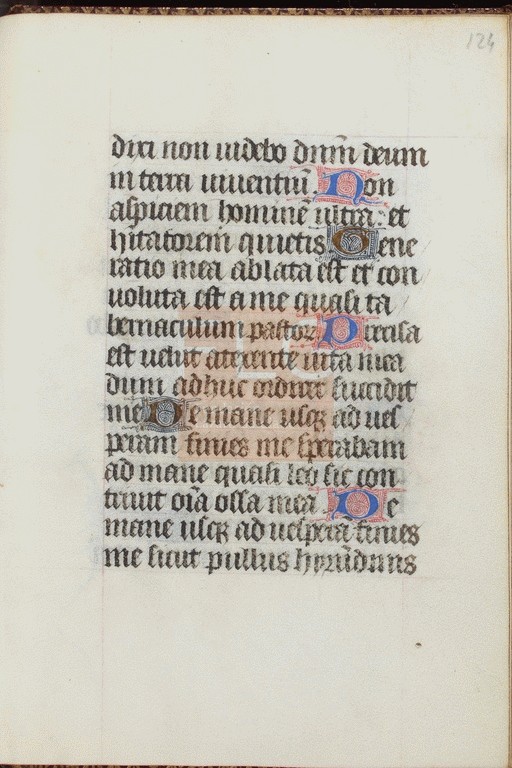 124
dixi non uidebo dn̄m deum
in terra uiuentiū. Non
aspiciem hominē ultra: et
hitatorem quietis Gene
ratio mea ablata est et con
uoluta est a me quasi ta
bernaculum pastoꝝ Precisa
est uelut a texente uita mea
dum adhuc ordirer succidit
me De mane usqꝫ ad ues
peram finies me sperabam
ad mane quasi leo sic con
triuit oīa ossa mea. De
mane usqꝫ ad uesperā finies
me sicut pullus hyrūdinis